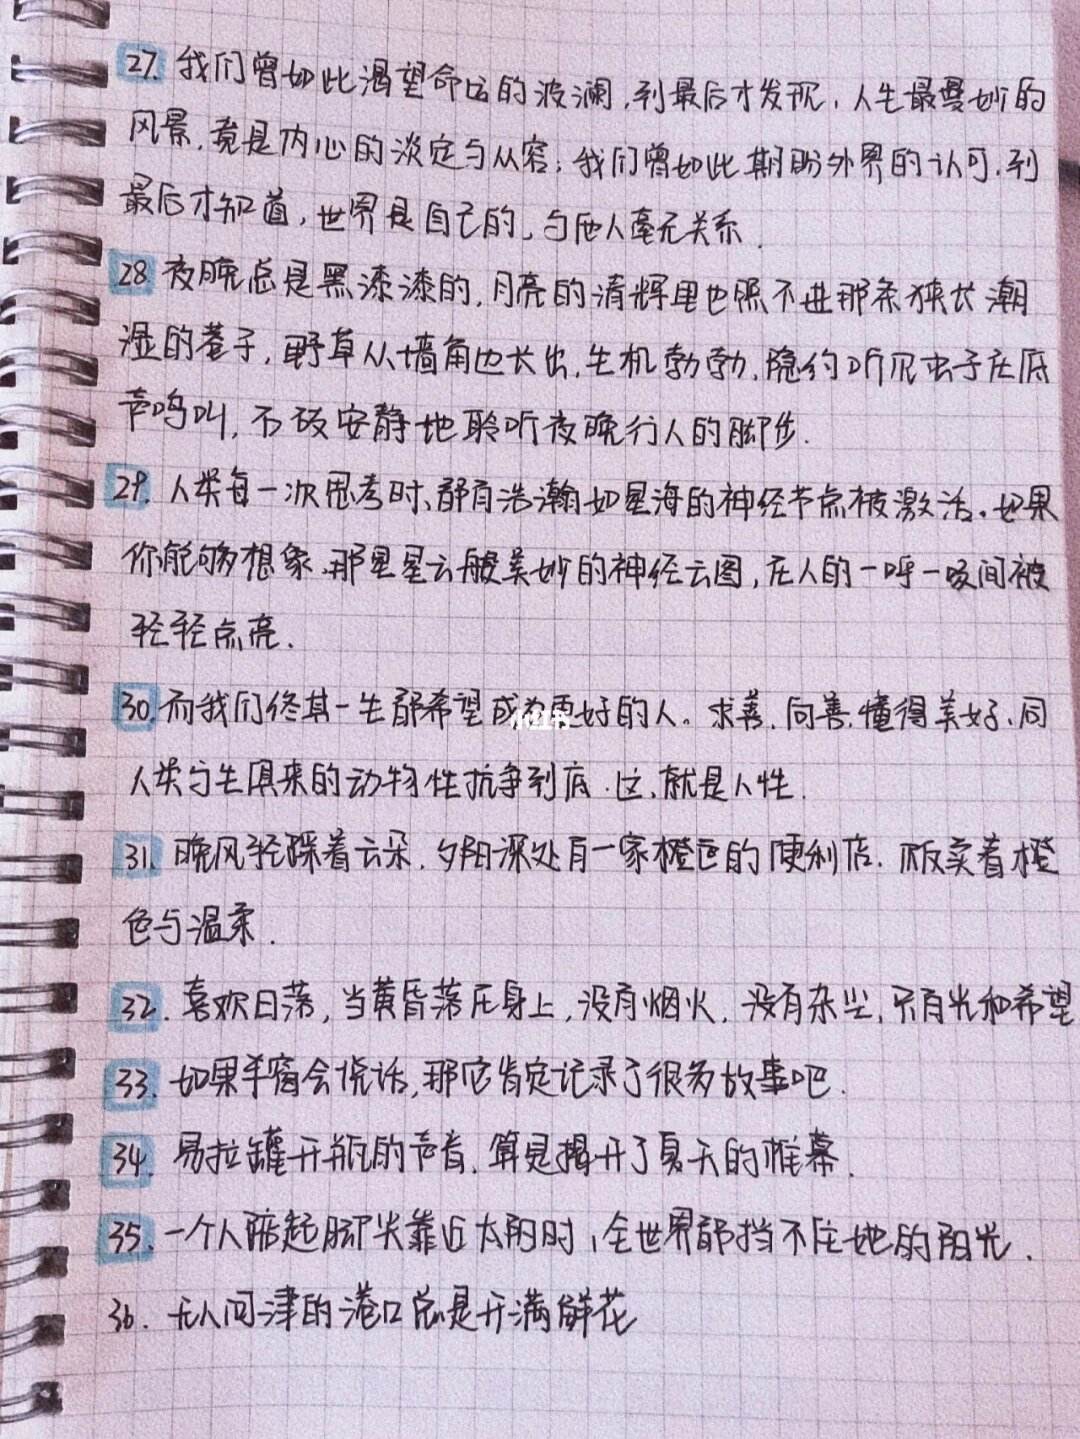 27. 我们曾如此渴望命运的波澜,到最后才发现,人生最曼妙的
风景,竟是内心的淡定与从容;我们曾如此期盼外界的认可,到
最后才知道,世界是自己的,与他人毫无关系.
28 夜晚总是黑漆漆的,月亮的清辉里也照不进那条狭长潮
湿的巷子,野草从墙角边长出,生机勃勃,隐约听见虫子在底
声鸣叫,不破安静地聆听夜晚行人的脚步.
29. 人类每一次思考时、都有浩瀚如星海的神经节点被激活。如果
你能够想象,那星星云般美妙的神经云图,在人的一呼一吸间被
轻轻点亮.
30. 而我们终其一生都希望成为更好的人。求善,向善,懂得美好、同
人类与生俱来的动物性抗争到底.这,就是人性.
小红书
31. 晚风轻踩着云朵.夕阳深处有一家橙色的便利店.贩卖着橙
色与温柔.
32. 喜欢日落,当黄昏落在身上,没有烟火,没有杂尘,只有光和希望
33. 如果手窗会说话,那它肯定记录了很多故事吧.
34. 易拉罐开瓶的声音.算是揭开了夏天的帷幕.
35. 一个人踮起脚尖靠近太阳时,全世界都挡不住她的阳光.
36. 无人问津的港口总是开满鲜花